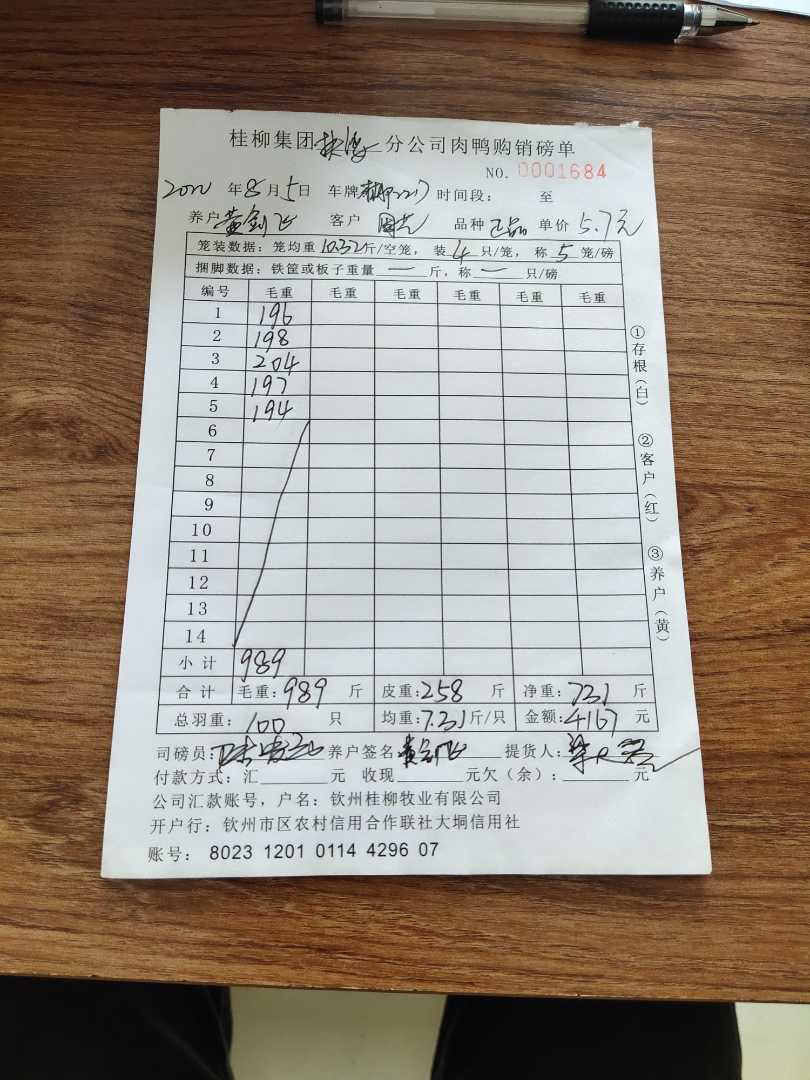 桂柳集团 分公司肉鸭购销磅单
NO. 0001684
年8月5日 车牌 时间段： 至
养户 黄剑飞 客户 品种 正品 单价 5.7元
笼装数据：笼均重10.32斤/空笼，装4只/笼，称5笼/磅
捆脚数据：铁筐或板子重量 — 斤，称 — 只/磅
编号 毛重 毛重 毛重 毛重 毛重 毛重
1 196
2 198
3 204
4 197
5 194
6
7
8
9
10
11
12
13
14
小计 989
合计 毛重：989 斤 皮重：258 斤 净重：731 斤
总羽重：100 只 均重：7.31斤/只 金额：4167 元
司磅员： 养户签名 黄剑飞 提货人：
付款方式：汇 元 收现 元欠（余）： 元
公司汇款账号，户名：钦州桂柳牧业有限公司
开户行：钦州市区农村信用合作联社大垌信用社
账号： 8023 1201 0114 4296 07
①存根（白）
②客户（红）
③养户（黄）